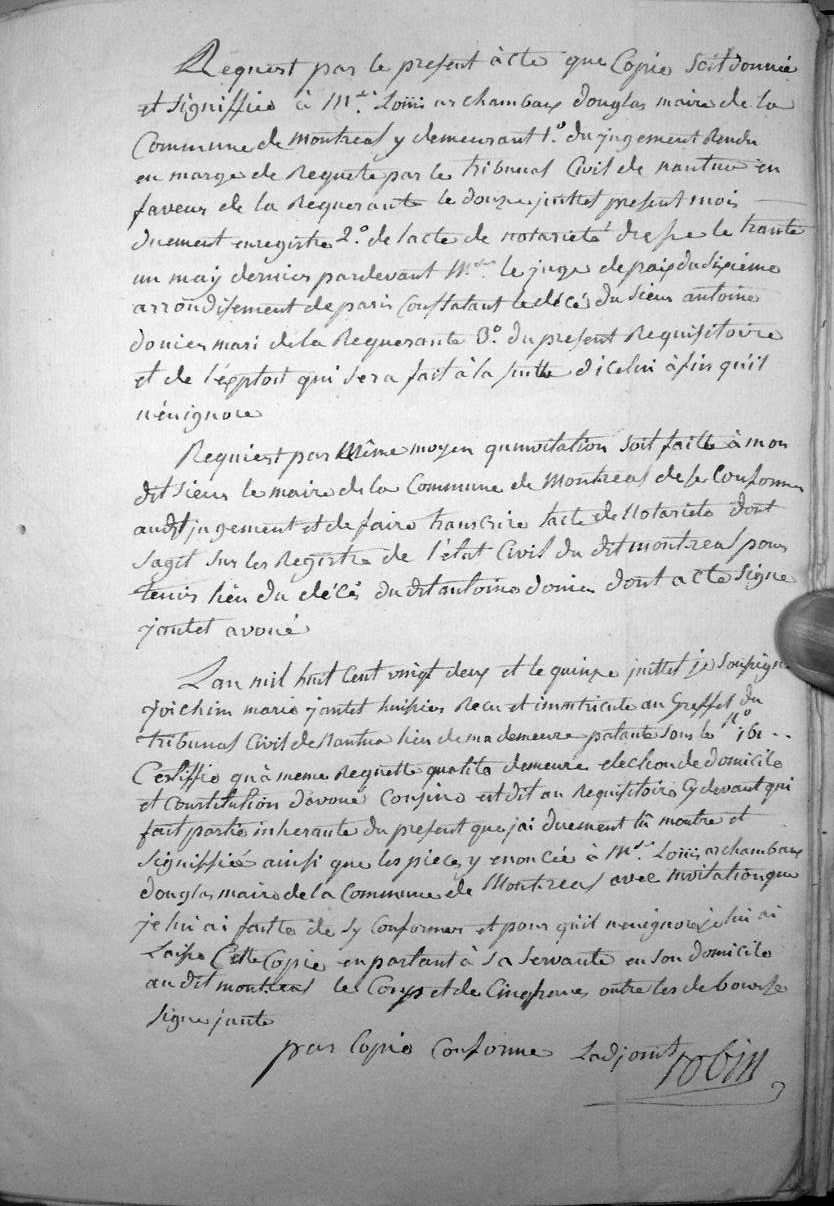 Requert par le present acte que Copie soit donnée
et signiffiée à Mr. Louis archambaux douglas maire de la
Commune de Montreal y demeurant 1.º du jugement Rendu
en marge de Requete par le tribunal Civil de nantua en
faveur de la Requerante le douze juillet present mois
duement enregistre 2.º de lacte de notarieté dresse le trante
un may dernier pardevant Mr. le juge de paix du sixieme
arrondisement de paris Constatant le décés du sieur antoine
donier mari de la Requerante 3.º du present Requisitoire
et de l'éxploit qui sera fait à la suitte dicelui àfin qu'il
n'énignore
Requiert par Même moyen qu'invitation soit faitte à mon
dit sieur le maire de la Commune de Montreal de se Conformer
audit jugement et de faire transcrire lacte de Notarieté dont
sagit sur les Registre de l'état Civil du dit montreal pour
tenir lieu du décés du dit antoine donier dont acte signe
jantet avoué
Lan mil huit Cent vingt deux et le quinze juillet je soussigne
Joichim marie jantet huissier Recu et immatricule au Greffet du
tribunal Civil de Nantua lieu de ma demeure patante sous le Nº 161
Certiffie qu'à meme Requette qualité demeure election de domicile
et Constitution davoué Consine est dit au Requisitoire Cy devant qui
fait partie inherante du present que jai duement lu montre et
signiffié ainsi que les pieces y enoncée à Mr. Louis archambaux
douglas maire de la Commune de Montreal avec invitation que
je lui ai faitte de sy Conformer et pour qu'il nenignore je lui ai
Laisse Cette Copie en parlant à sa servante en son domicile
au dit montreal le Coup et de Cinq francs outre les debourse
signe jantet
par Copie Conforme Ladjoint tobin